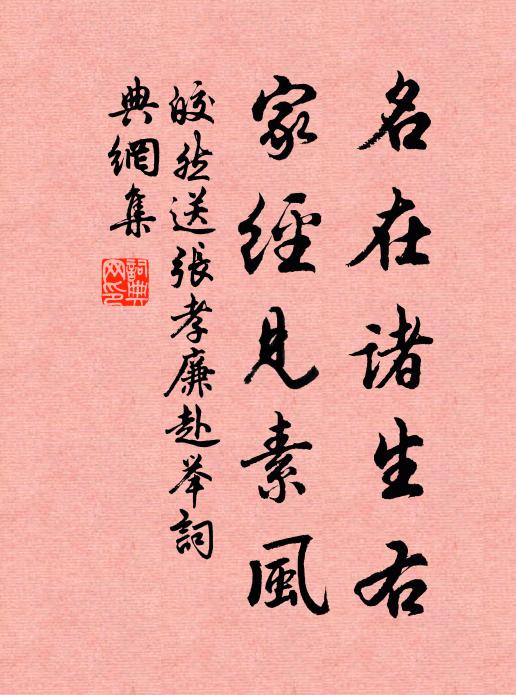 名在诸生右
家經見素風
皎然送張孝廉赴举詞
典網集
詞典網印